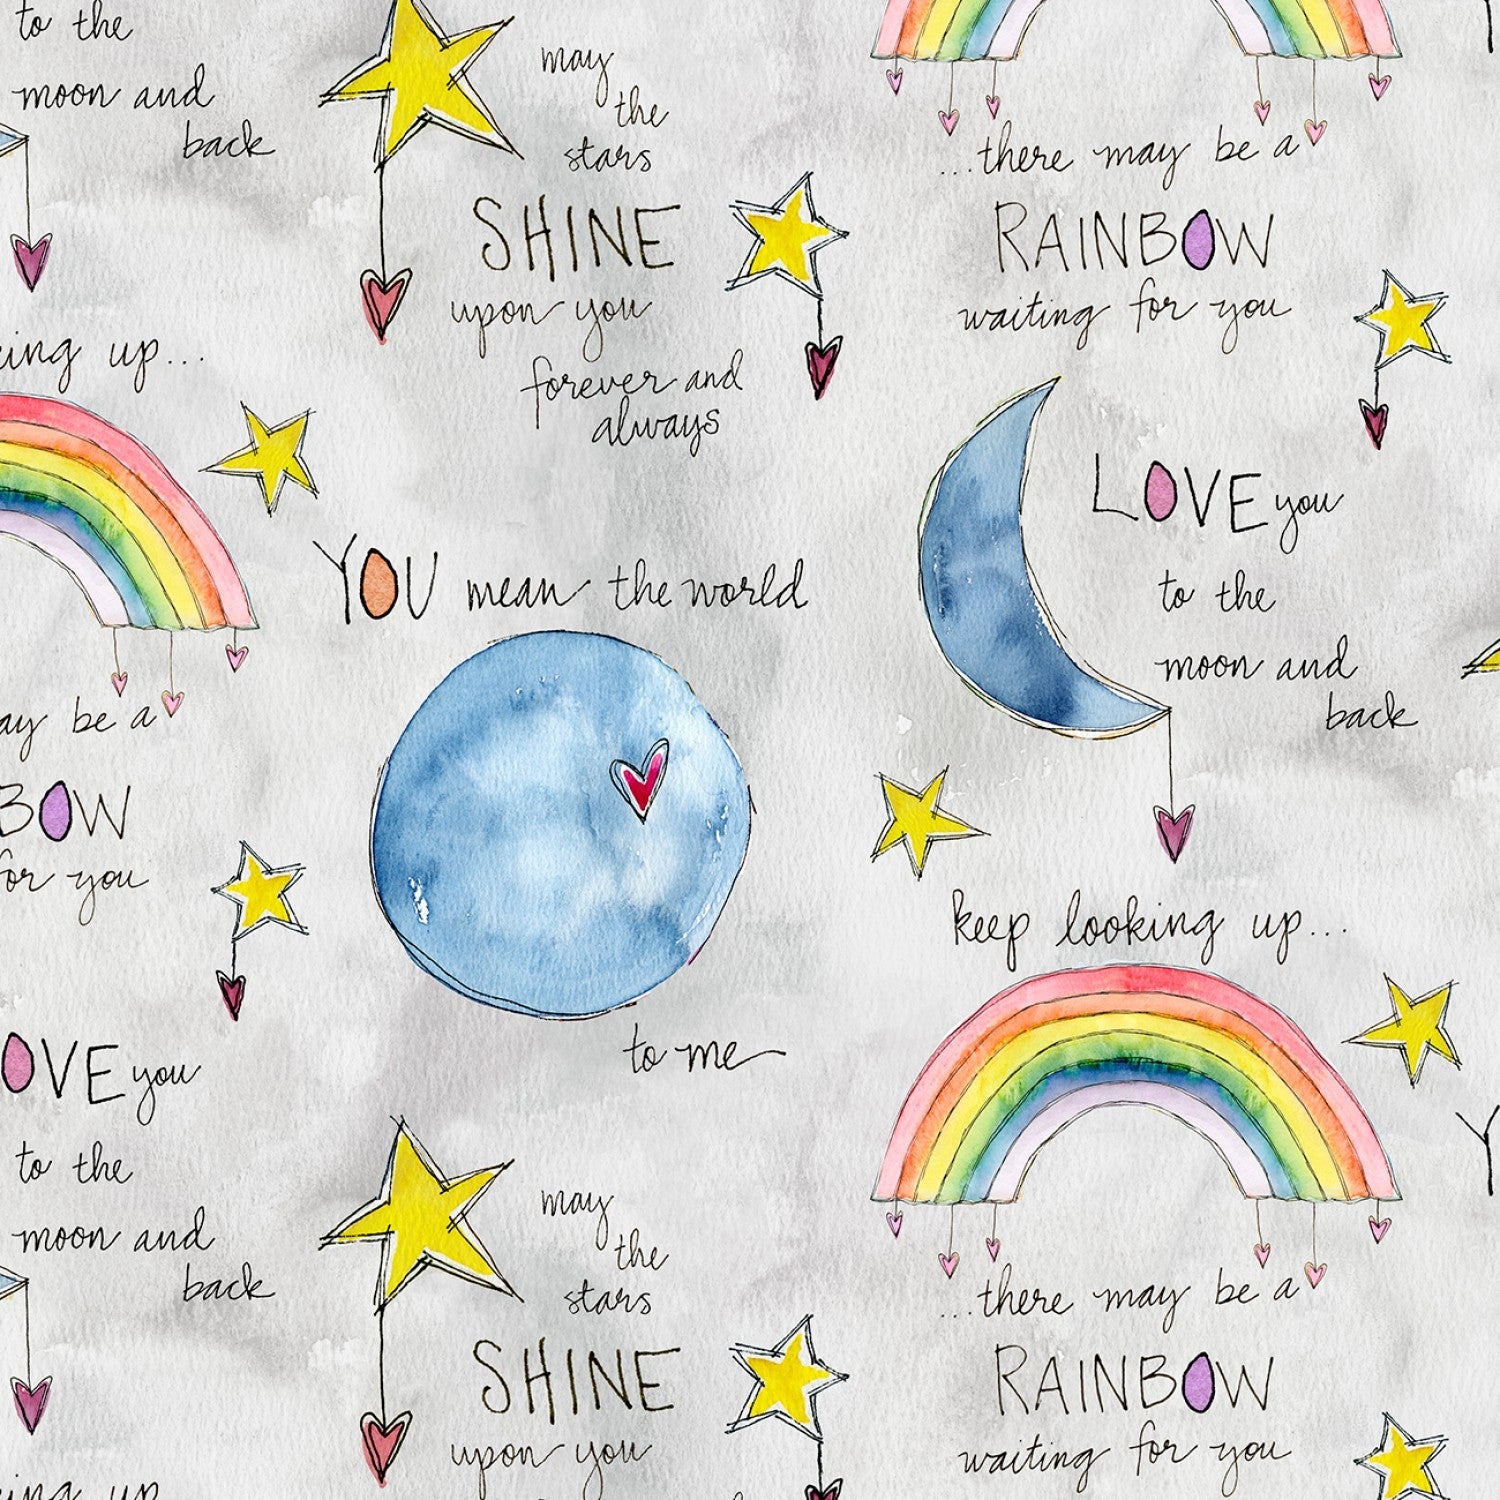 to the
moon and
back
may
the
stars
SHINE
upon you
forever and
always
...there may be a
RAINBOW
waiting for you
ing up...
LOVE you
to the
moon and
back
YOU mean the world
to me
ay be a
BOW
for you
keep looking up...
OVE you
to the
moon and
back
may
the
stars
SHINE
upon you
...there may be a
RAINBOW
waiting for you
ing up